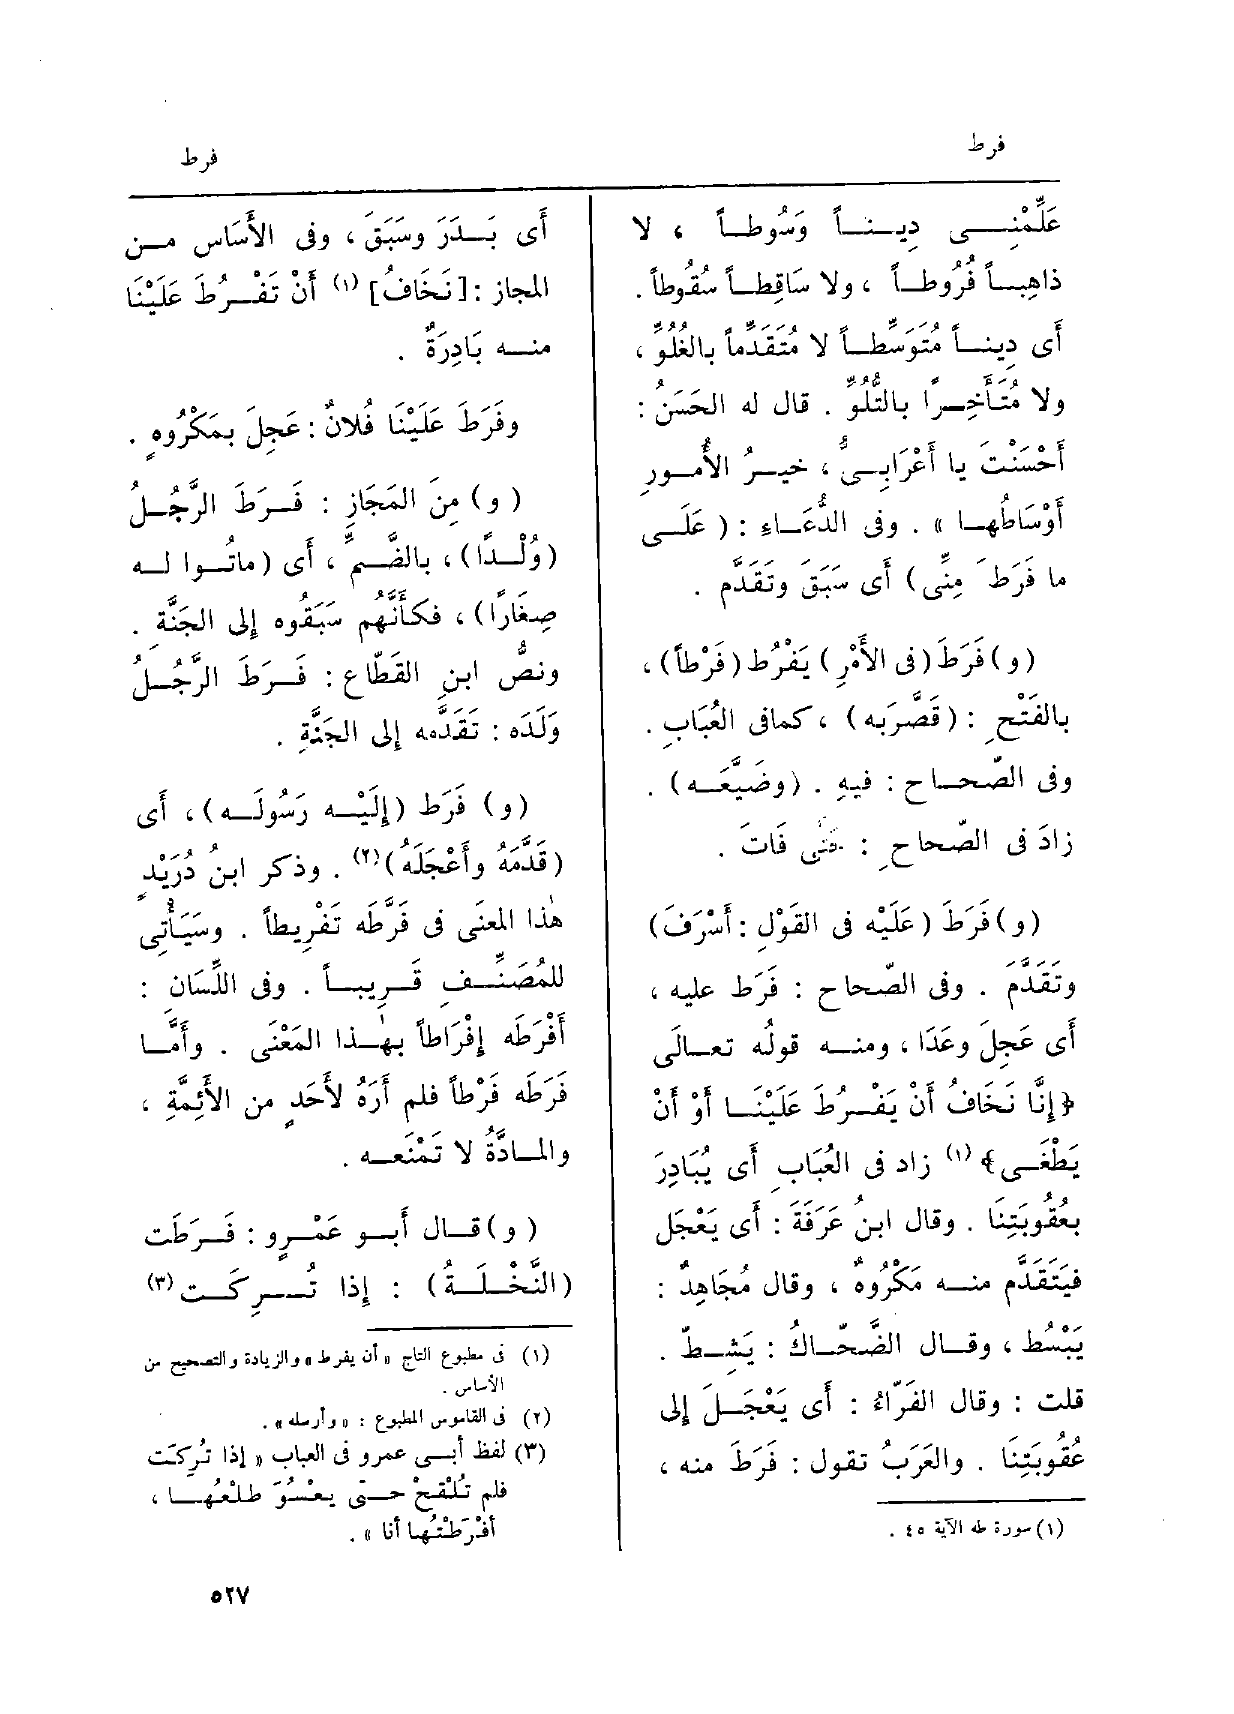 فرط
عَلِّمْنِــى دِينــاً وَسُوطــاً ، لا
ذاهِبــاً فُرُوطــاً ، ولا سَاقِطــاً سُقُوطاً .
أَى دِينــاً مُتَوَسِّطــاً لا مُتَقَدِّماً بالغُلُوِّ ،
ولا مُتَأَخِــرًا بالتُّلُوِّ . قال له الحَسَنُ :
أَحْسَنْتَ يا أَعْرَابِــىُّ ، خيــرُ الأُمــورِ
أَوْسَاطُهــا » . وفى الدُّعَــاءِ : ( عَلَــى
ما فَرَطَ مِنِّى ) أَى سَبَقَ وتَقَدَّم .
( و ) فَرَطَ ( فى الأَمْرِ ) يَفْرُط ( فَرْطاً ) ،
بالفَتْحِ : ( قَصَّرَ به ) ، كما فى العُبَابِ .
وفى الصّحــاح : فيهِ . ( وضَيَّعَــه ) .
زادَ فى الصّحاحِ : حَتَّى فَاتَ .
( و ) فَرَطَ ( عَلَيْه فى القَوْلِ : أَسْرَفَ )
وتَقَدَّم . وفى الصّحاح : فَرَط عليه ،
أَى عَجِلَ وعَدَا ، ومنــه قولُه تعــالَى
﴿ إِنَّنَا نَخَافُ أَنْ يَفْــرُطَ عَلَيْنَــا أَوْ أَنْ
يَطْغَــى ﴾ (١) زاد فى العُبَابِ أَى يُبَادِرَ
بعُقُوبَتِنَا . وقال ابنُ عَرَفَةَ : أَى يَعْجَل
فيَتَقَدَّم منــه مَكْرُوهٌ ، وقال مُجَاهِدٌ :
يَبْسُط ، وقــال الضَّحّــاكُ : يَشِــطّ .
قلت : وقال الفَرّاءُ : أَى يَعْجَــلَ إِلى
عُقُوبَتِنَا . والعَرَبُ تقول : فَرَطَ منه ،
(١) سورة طه الآية ٤٥ .
فرط
أَى بَــدَرَ وسَبَقَ ، وفى الأَسَاسِ مــن
المجاز : [ نَخَافُ ] (١) أَنْ تَفْــرُطَ عَلَيْنَا
منــه بَادِرَةٌ .
وفَرَطَ عَلَيْنَا فُلانٌ : عَجِلَ بمَكْرُوهٍ .
( و ) مِنَ المَجَازِ : فَــرَطَ الرَّجُــلُ
( وُلْــدًا ) ، بالضَّــمِّ ، أَى ( ماتُــوا لــه
صِغَارًا ) ، فكأَنَّهُم سَبَقُوه إِلى الجَنَّةِ .
ونصُّ ابنِ القَطّاع : فَــرَطَ الرَّجُــلُ
وَلَدَه : تَقَدَّمه إِلى الجَنَّةِ .
( و ) فَرَط ( إِلَيْــه رَسُولَــه ) ، أَى
( قَدَّمَهُ وأَعْجَلَهُ ) (٢) . وذكر ابنُ دُرَيْدٍ
هٰذا المعنَى فى فَرَّطَه تَفْرِيطاً . وسَيَأْتِى
للمُصَنِّــف قَــرِيبــاً . وفى اللِّسَانِ :
أَفْرَطَه إِفْرَاطاً بهٰــذا المَعْنَى . وأَمَّــا
فَرَطَه فَرْطاً فلم أَرَهُ لأَحَدٍ من الأَئِمَّةِ ،
والمــادَّةُ لا تَمْنَعــه .
( و ) قــال أَبــو عَمْــرٍو : فَــرَطَت
( النَّخْــلَــةُ ) : إِذا تُــرِكَــت (٣)
(١) فى مطبوع التاج « أن يفرط » والزيادة والتصحيح من
الأساس .
(٢) فى القاموس المطبوع : « وأرسله » .
(٣) لفظ أبــى عمرو فى العباب « إذا تُرِكَت
فلم تُلْقَحْ حــتى يعْسُوَ طلْعُهــا ،
أفْرَطْتُها أنا » .
٥٢٧